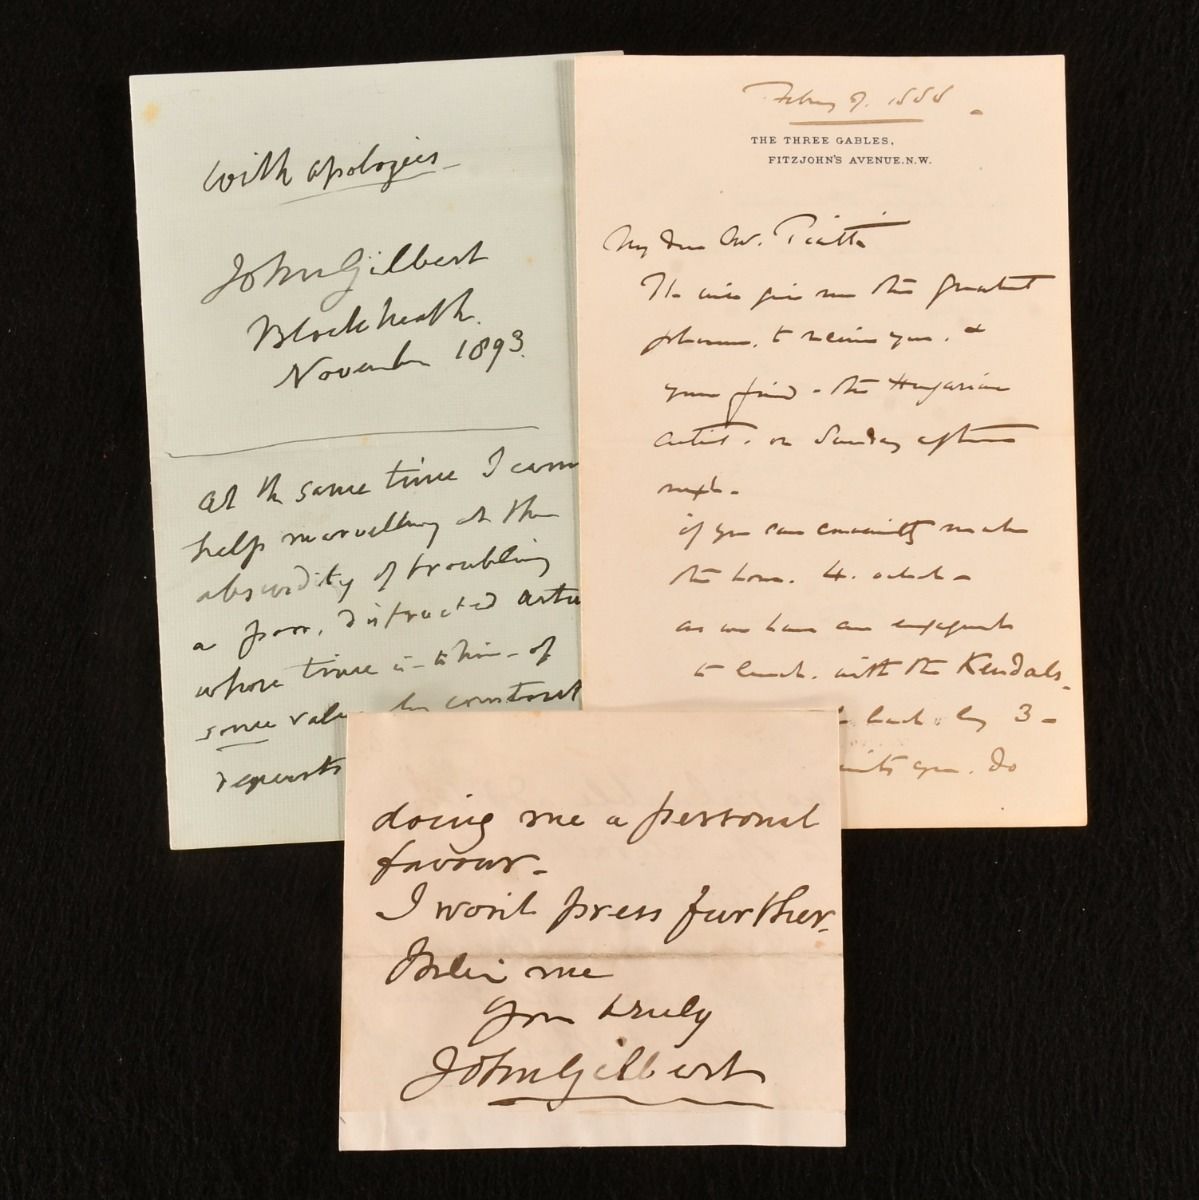 with apologies
John Gilbert
Blackheath.
November 1893.
at the same time I cann
help marvelling at the
absurdity of troubling
a poor, distracted artis
whose time is - to him - of
some value by constant
requests
1888
THE THREE GABLES,
FITZJOHN'S AVENUE.N.W.
My dear Mr. Piatti
It will give me the greatest
pleasure, to receive you, &
your friend - the Hungarian
artist. on Sunday afternoon
next -
if you can conveniently make
the hour. 4. oclock -
as we have an engagement
to lunch. with the Kendals.
back by 3 -
you. do
doing me a personal
favour -
I won't press further.
Belie me
your truly
John Gilbert